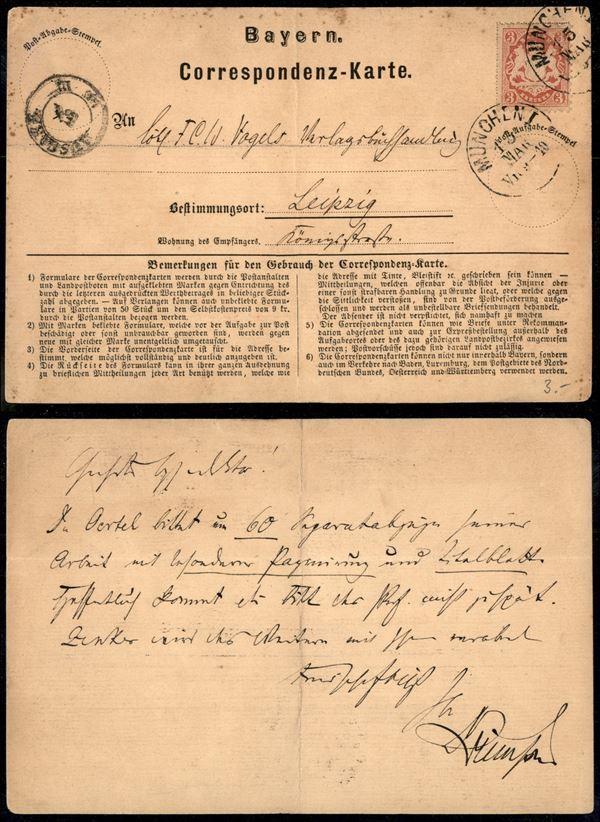 Bayern.
Correspondenz-Karte.
Post-Abgabe-Stempel.
3 3
3 3
MÜNCHEN I
13
MAR
AUSGABE
III
Post-Aufgabe-Stempel
MÜNCHEN I.
13
MAR
VII 10
An Löbl. F.C.W. Vogels Verlagsbuchhandlung
Bestimmungsort: Leipzig
Wohnung des Empfängers. Königsstraße.
Bemerkungen für den Gebrauch der Correspondenz-Karte.
1) Formulare der Correspondenzkarten werden durch die Postanstalten
und Landpostboten mit aufgeklebten Marken gegen Entrichtung des
durch die letzteren ausgedrückten Werthbetrages in beliebiger Stück-
zahl abgegeben. — Auf Verlangen können auch unbeklebte Formu-
lare in Partien von 50 Stück um den Selbstkostenpreis von 9 kr.
durch die Postanstalten bezogen werden.
2) Mit Marken beklebte Formulare, welche vor der Aufgabe zur Post
beschädigt oder sonst unbrauchbar geworden sind, werden gegen
neue mit gleicher Marke unentgeltlich umgetauscht.
3) Die Vorderseite der Correspondenzkarte ist für die Adresse be-
stimmt, welche möglichst vollständig und deutlich anzugeben ist.
4) Die Rückseite des Formulars kann in ihrer ganzen Ausdehnung
zu brieflichen Mittheilungen jeder Art benützt werden, welche wie
die Adresse mit Tinte, Bleistift ꝛc. geschrieben sein können —
Mittheilungen, welchen offenbar die Absicht der Injurie oder
einer sonst strafbaren Handlung zu Grunde liegt, oder welche gegen
die Sittlichkeit verstoßen, sind von der Postbeförderung ausge-
schlossen und werden als unbestellbare Briefsendungen behandelt.
Der Absender ist nicht verpflichtet, sich namhaft zu machen
5) Die Correspondenzkarten können wie Briefe unter Rekommanda-
tion abgesendet und auch zur Expreßbestellung außerhalb des
Aufgabeortes oder des dazu gehörigen Landpostbezirkes angewiesen
werden; Postvorschüsse jedoch sind darauf nicht zulässig.
6) Die Correspondenzkarten können nicht nur innerhalb Bayern, sondern
auch im Verkehr nach Baden, Luxemburg, dem Postgebiete des Nord-
deutschen Bundes, Oesterreich und Württemberg verwendet werden.
3.-
Oertel bittet um 60 Separatabzüge seiner
Arbeit mit besonderer Paginirung und Titelblatt.
Hoffentlich kommt die Bitte des Prof. nicht zu spät.
Zenker wird das Weitere mit Ihnen
Ihr